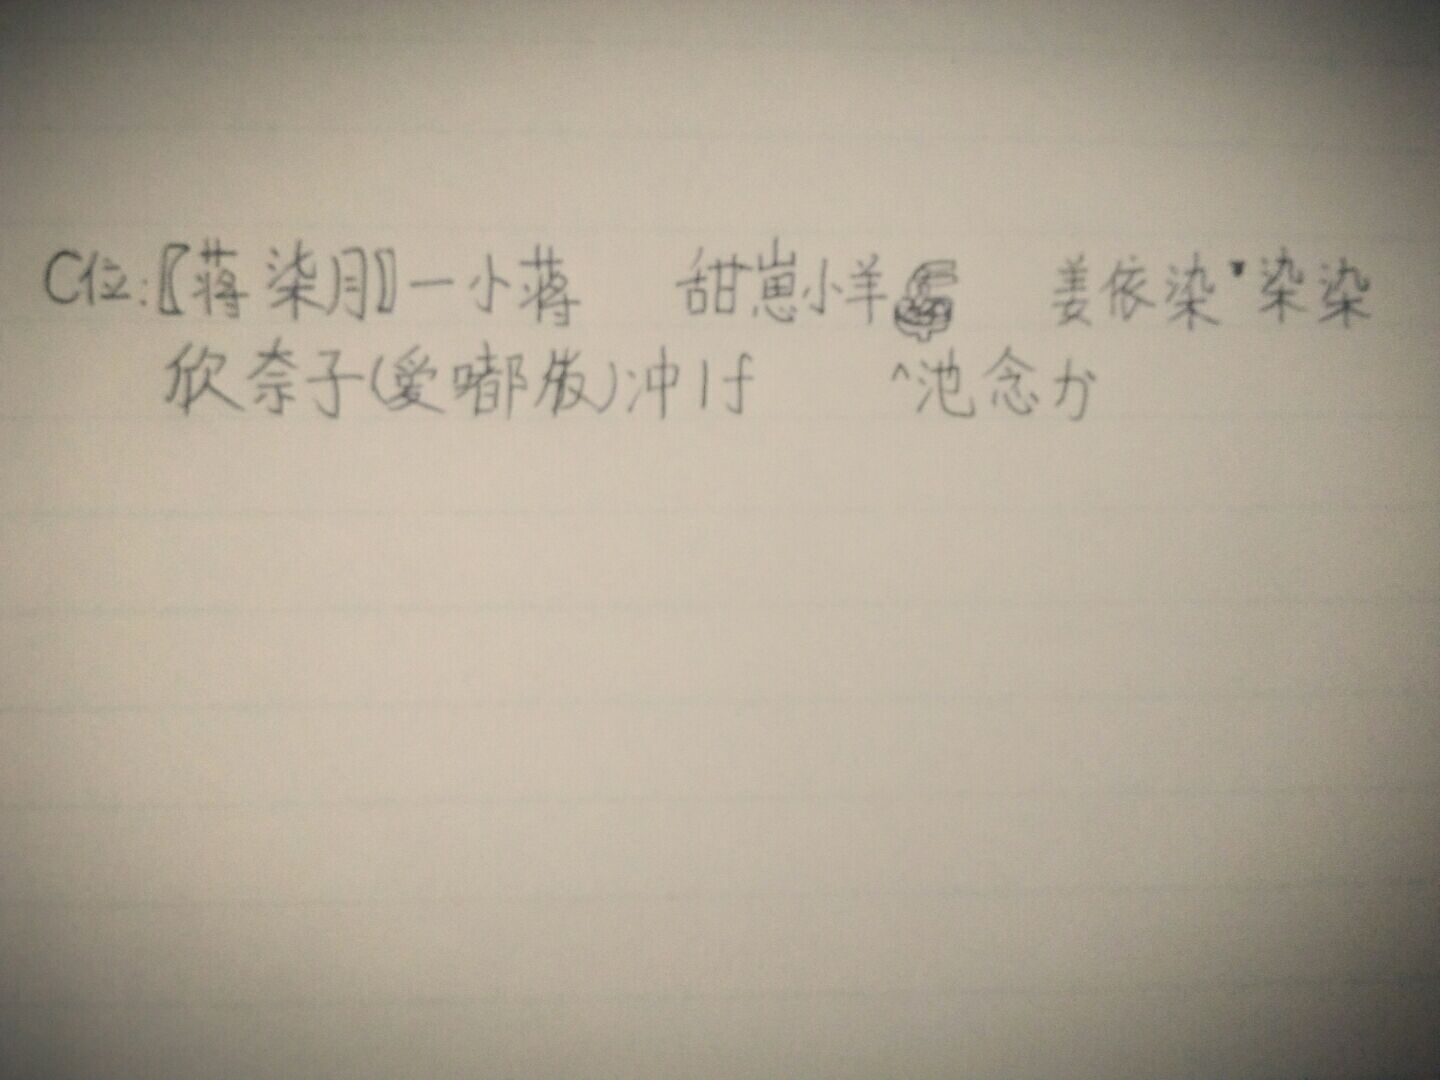 C位:〖蒋柒月〗一小蒋 甜崽小羊 姜依染▾染染
欣奈子(爱嘟版)冲1f ^池念か